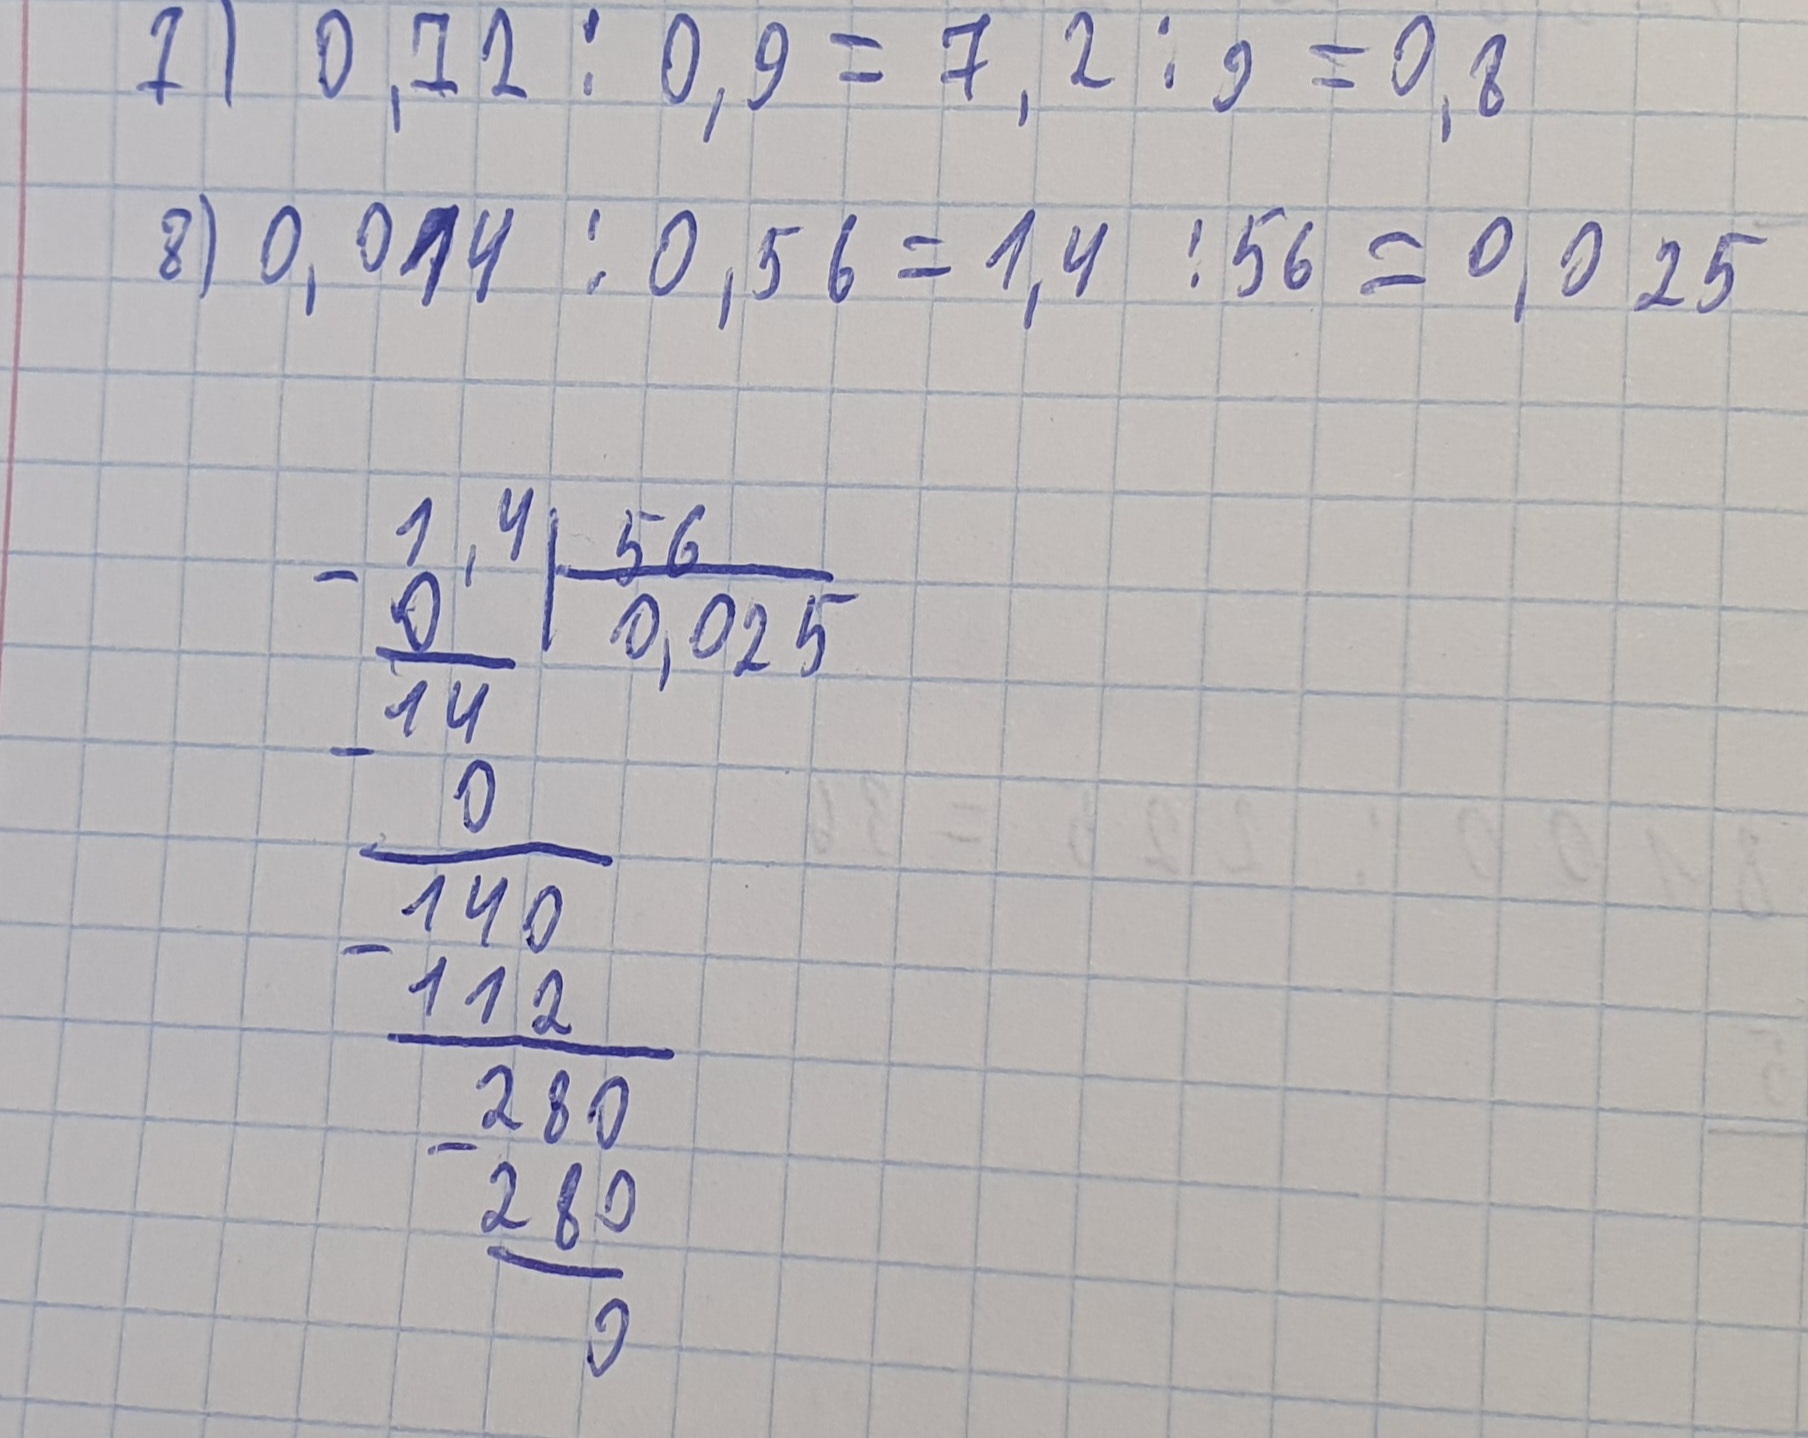 7) 0,72 : 0,9 = 7,2 : 9 = 0,8
8) 0,014 : 0,56 = 1,4 : 56 = 0,025
- 1,4 | 56
0 | 0,025
14
- 0
140
- 112
280
- 280
0